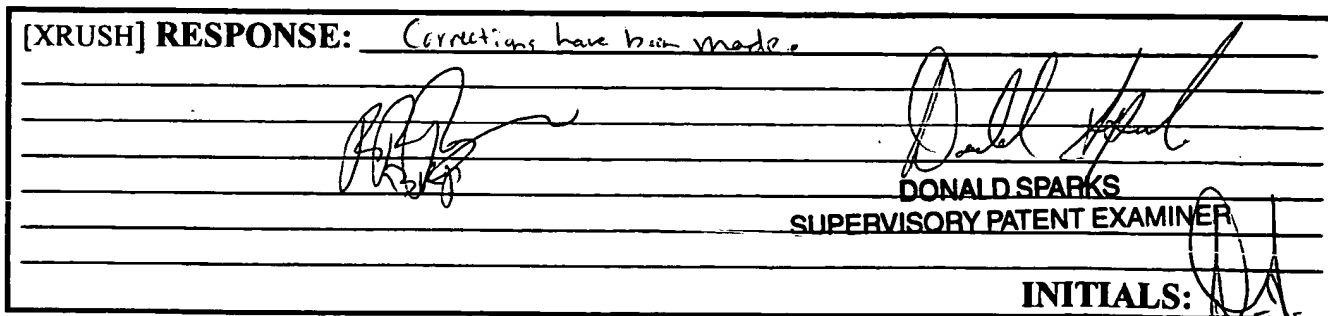 [XRUSH] RESPONSE: Corrections have been made.
DONALD SPARKS
SUPERVISORY PATENT EXAMINER
INITIALS: